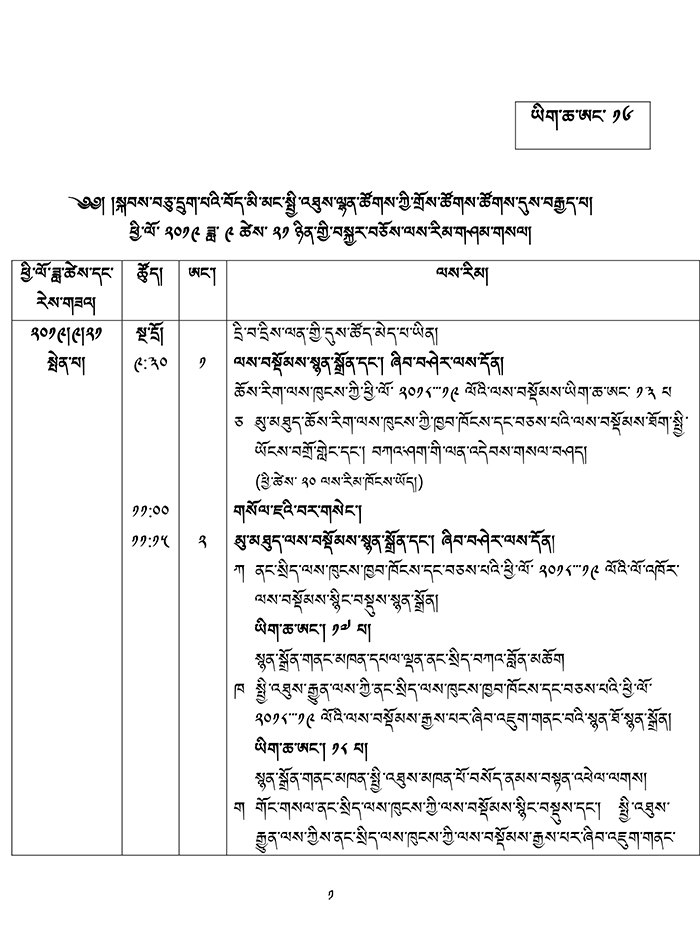 ཡིག་ཆ་ཨང་ ༡༦
༄༅། །སྐབས་བཅུ་དྲུག་པའི་བོད་མི་མང་སྤྱི་འཐུས་ལྷན་ཚོགས་ཀྱི་གྲོས་ཚོགས་ཚོགས་དུས་བརྒྱད་པ།
ཕྱི་ལོ་ ༢༠༡༩ ཟླ་ ༩ ཚེས་ ༢༡ ཉིན་གྱི་བསྐྱར་བཅོས་ལས་རིམ་གཤམ་གསལ།
ཕྱི་ལོ་ཟླ་ཚེས་དང་ ཚོད། ཨང་། ལས་རིམ།
རེས་གཟའ།
༢༠༡༩།༩།༢༡ སྔ་དྲོ། དྲི་བ་དྲིས་ལན་གྱི་དུས་ཚོད་མེད་པ་ཡིན།
སྤེན་པ། ༩:༣༠ ༡ ལས་བསྡོམས་སྙན་སྒྲོན་དང་། ཞིབ་བཤེར་ལས་དོན།
ཆོས་རིག་ལས་ཁུངས་ཀྱི་ཕྱི་ལོ་ ༢༠༡༨་་་༡༩ ལོའི་ལས་བསྡོམས་ཡིག་ཆ་ཨང་ ༡༣ པ
ཅ མུ་མཐུད་ཆོས་རིག་ལས་ཁུངས་ཀྱི་ཁྱབ་ཁོངས་དང་བཅས་པའི་ལས་བསྡོམས་ཐོག་སྤྱི་
ཡོངས་བགྲོ་གླེང་དང་། བཀའ་ཤག་གི་ལན་འདེབས་གསལ་བཤད།
(ཕྱི་ཚེས་ ༢༠ ལས་རིམ་ཁོངས་ཡོད།)
༡༡:༠༠ གསོལ་ཇའི་བར་གསེང་།
༡༡:༡༥ ༢ མུ་མཐུད་ལས་བསྡོམས་སྙན་སྒྲོན་དང་། ཞིབ་བཤེར་ལས་དོན།
ཀ ནང་སྲིད་ལས་ཁུངས་ཁྱབ་ཁོངས་དང་བཅས་པའི་ཕྱི་ལོ་ ༢༠༡༨་་་༡༩ ལོའི་ལོ་འཁོར་
ལས་བསྡོམས་སྙིང་བསྡུས་སྙན་སྒྲོན།
ཡིག་ཆ་ཨང་། ༡༧ པ།
སྙན་སྒྲོན་གནང་མཁན་དཔལ་ལྡན་ནང་སྲིད་བཀའ་བློན་མཆོག
ཁ སྤྱི་འཐུས་རྒྱུན་ལས་ཀྱི་ནང་སྲིད་ལས་ཁུངས་ཁྱབ་ཁོངས་དང་བཅས་པའི་ཕྱི་ལོ་
༢༠༡༨་་་༡༩ ལོའི་ལས་བསྡོམས་རྒྱས་པར་ཞིབ་འཇུག་གནང་བའི་སྙན་ཐོ་སྙན་སྒྲོན།
ཡིག་ཆ་ཨང་། ༡༨ པ།
སྙན་སྒྲོན་གནང་མཁན་སྤྱི་འཐུས་མཁན་པོ་བསོད་ནམས་བསྟན་འཕེལ་ལགས།
ག གོང་གསལ་ནང་སྲིད་ལས་ཁུངས་ཀྱི་ལས་བསྡོམས་སྙིང་བསྡུས་དང་། སྤྱི་འཐུས་
རྒྱུན་ལས་ཀྱིས་ནང་སྲིད་ལས་ཁུངས་ཀྱི་ལས་བསྡོམས་རྒྱས་པར་ཞིབ་འཇུག་གནང་
༡